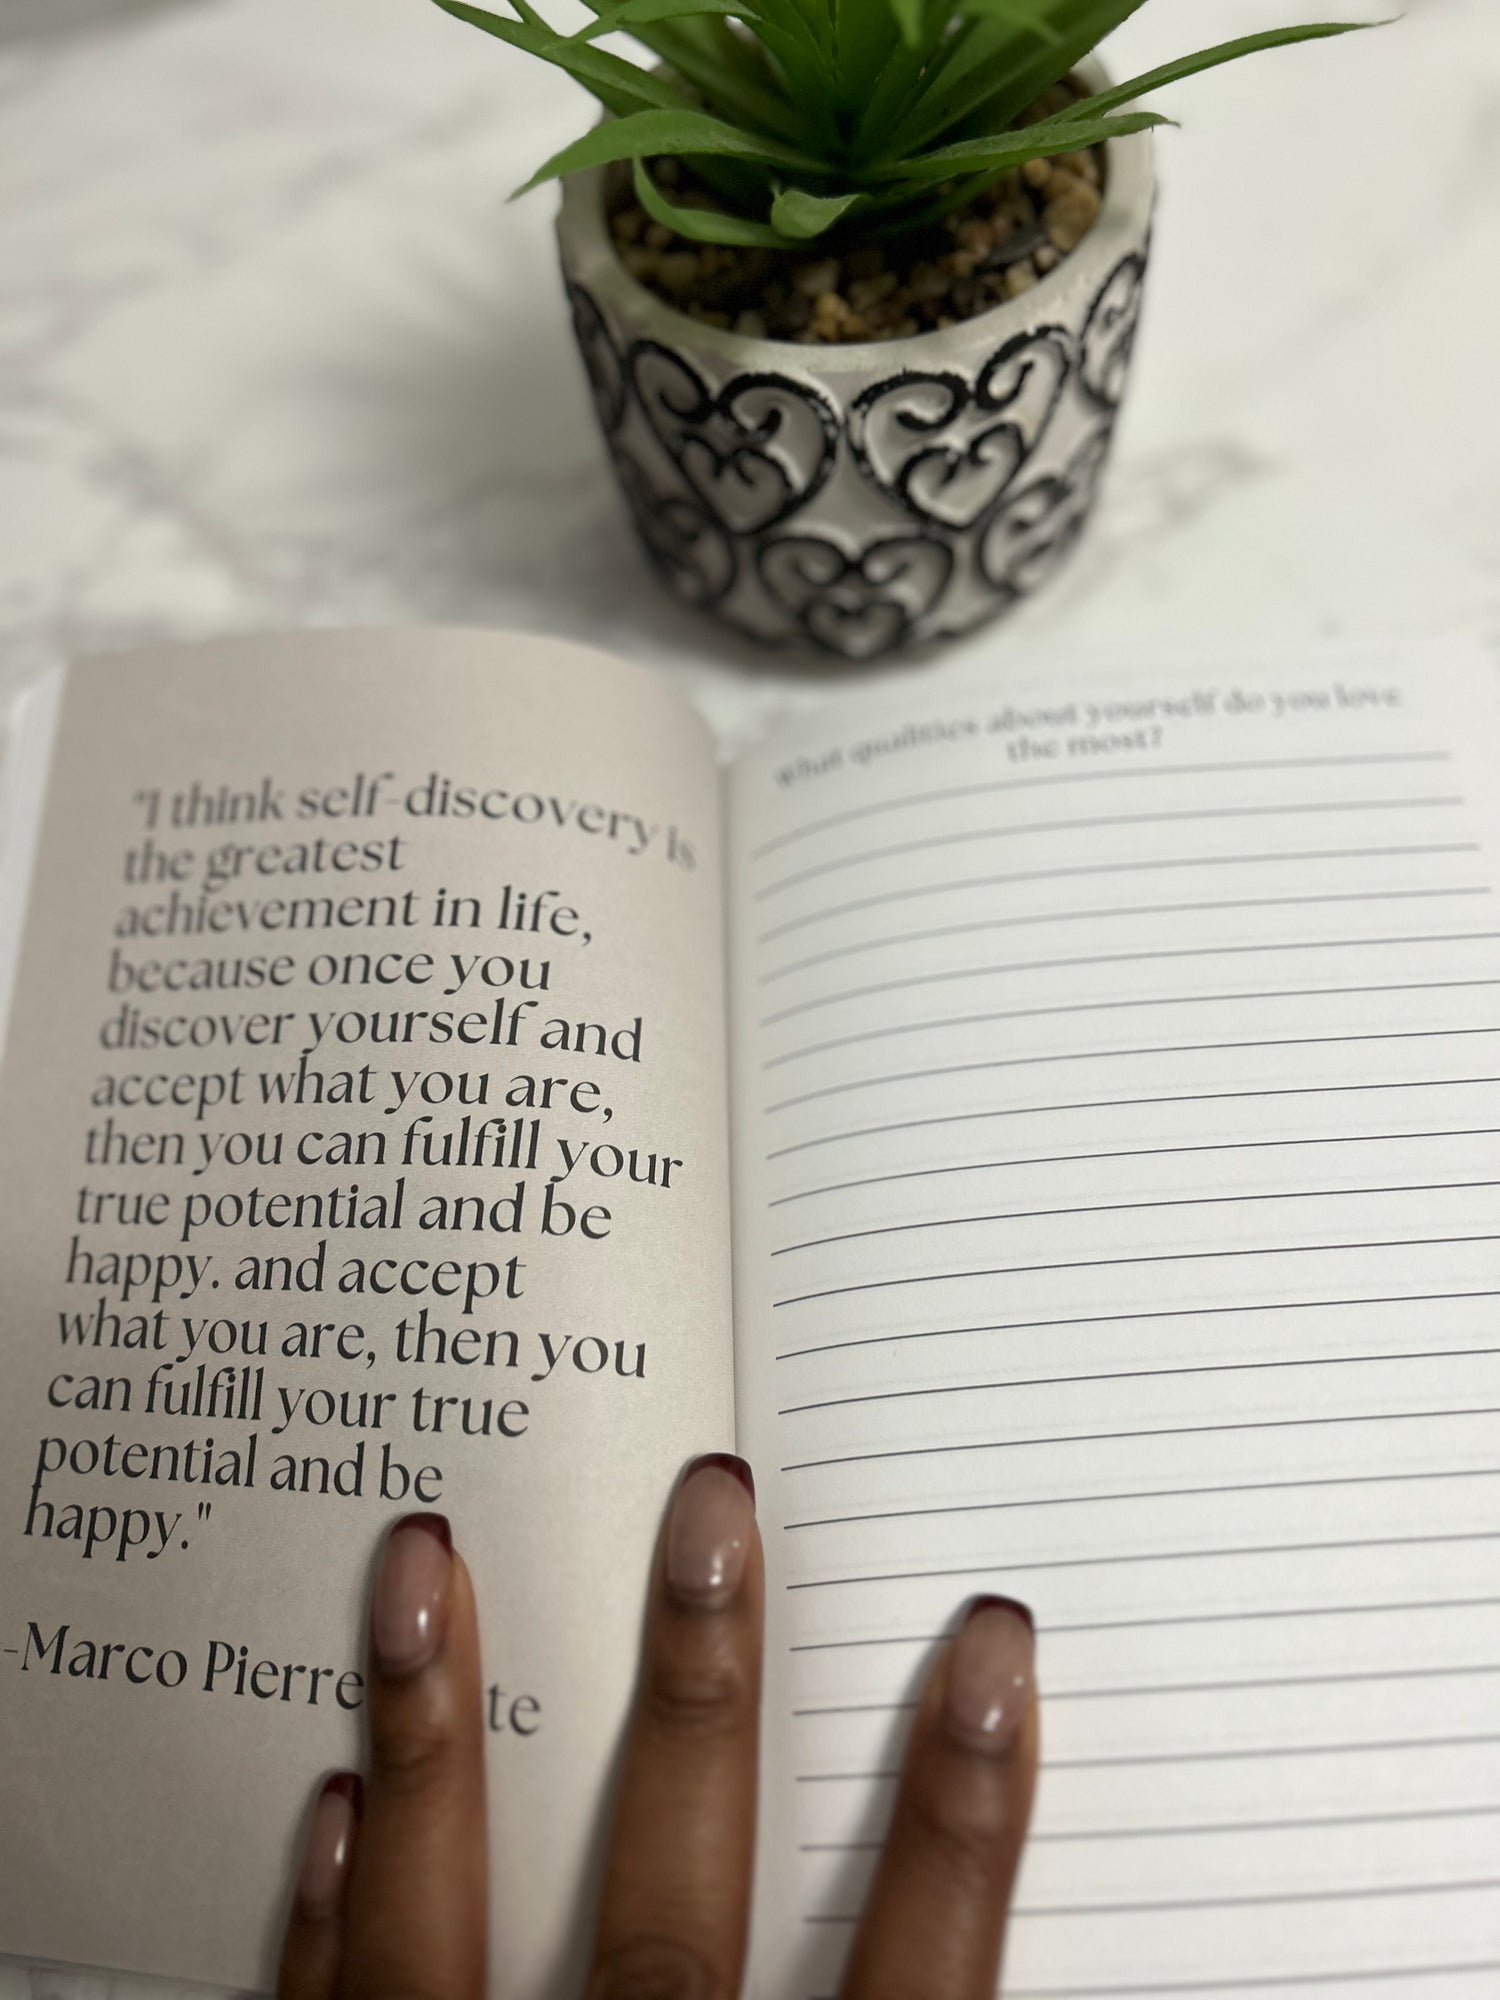 "I think self-discovery is
the greatest
achievement in life,
because once you
discover yourself and
accept what you are,
then you can fulfill your
true potential and be
happy. and accept
what you are, then you
can fulfill your true
potential and be
happy."
-Marco Pierre te
what qualities about yourself do you love
the most?